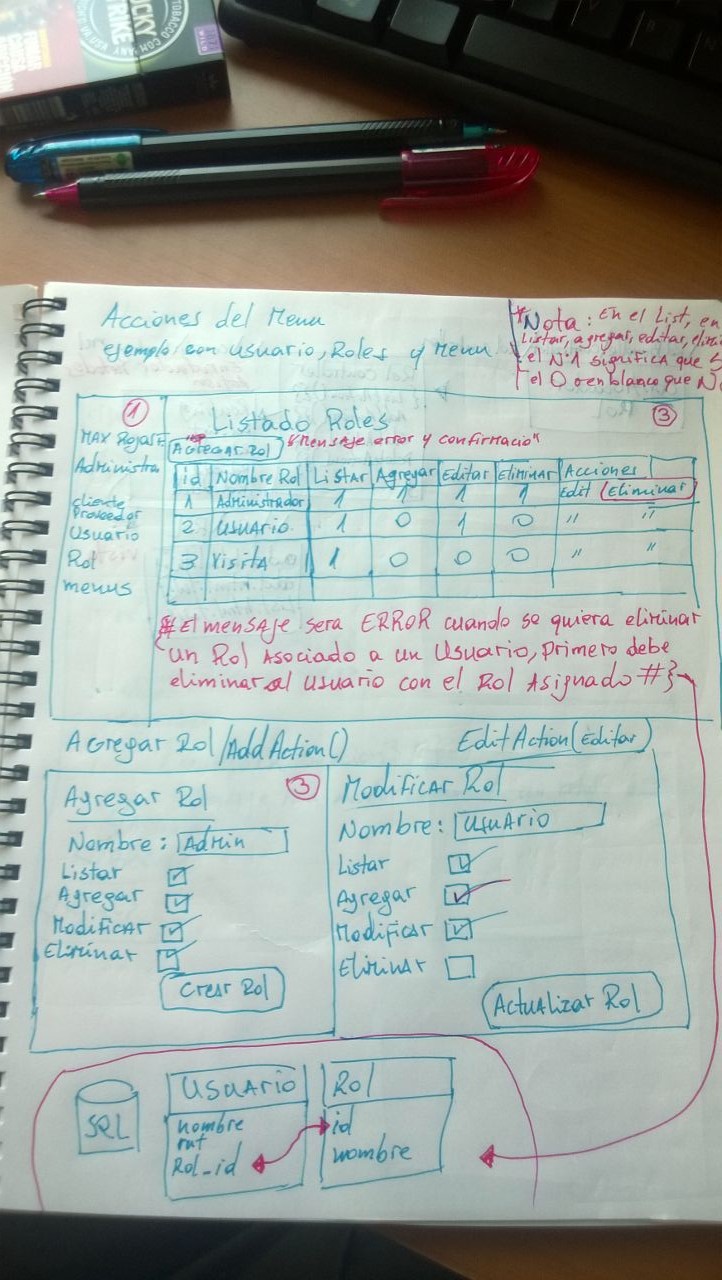 LUCKY
STRIKE
TOBACCO COMPANY
WILD
Acciones del Menu
ejemplo con usuario, Roles y Menu
*Nota: En el List, en
Listar, agregar, editar, elimi
el N°1 significa que S
el 0 o en blanco que N
1
Listado Roles
3
MAX Rojas
Agregar Rol
"Mensaje error y confirmacio"
Administra
cliente
Proveedor
Usuario
Rol
menus
id Nombre Rol Listar Agregar Editar Eliminar Acciones
1 Administrador 1 1 1 1 Edit (Eliminar)
2 Usuario 1 0 1 0 " "
3 Visita 1 0 0 0 " "
#El mensaje sera ERROR cuando se quiera eliminar
un Rol Asociado a un Usuario, primero debe
eliminar al usuario con el Rol Asignado #}
Agregar Rol/AddAction()
EditAction(Editar)
Agregar Rol
3
Nombre: Admin
Listar
Agregar
Modificar
Eliminar
Crear Rol
Modificar Rol
Nombre: Usuario
Listar
Agregar
Modificar
Eliminar
Actualizar Rol
SQL
Usuario
nombre
rut
Rol_id
Rol
id
nombre